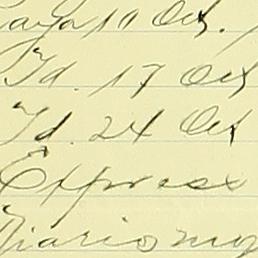 10 Oct.
Id. 17 Oct
Id. 24 Oct
Express
Diario